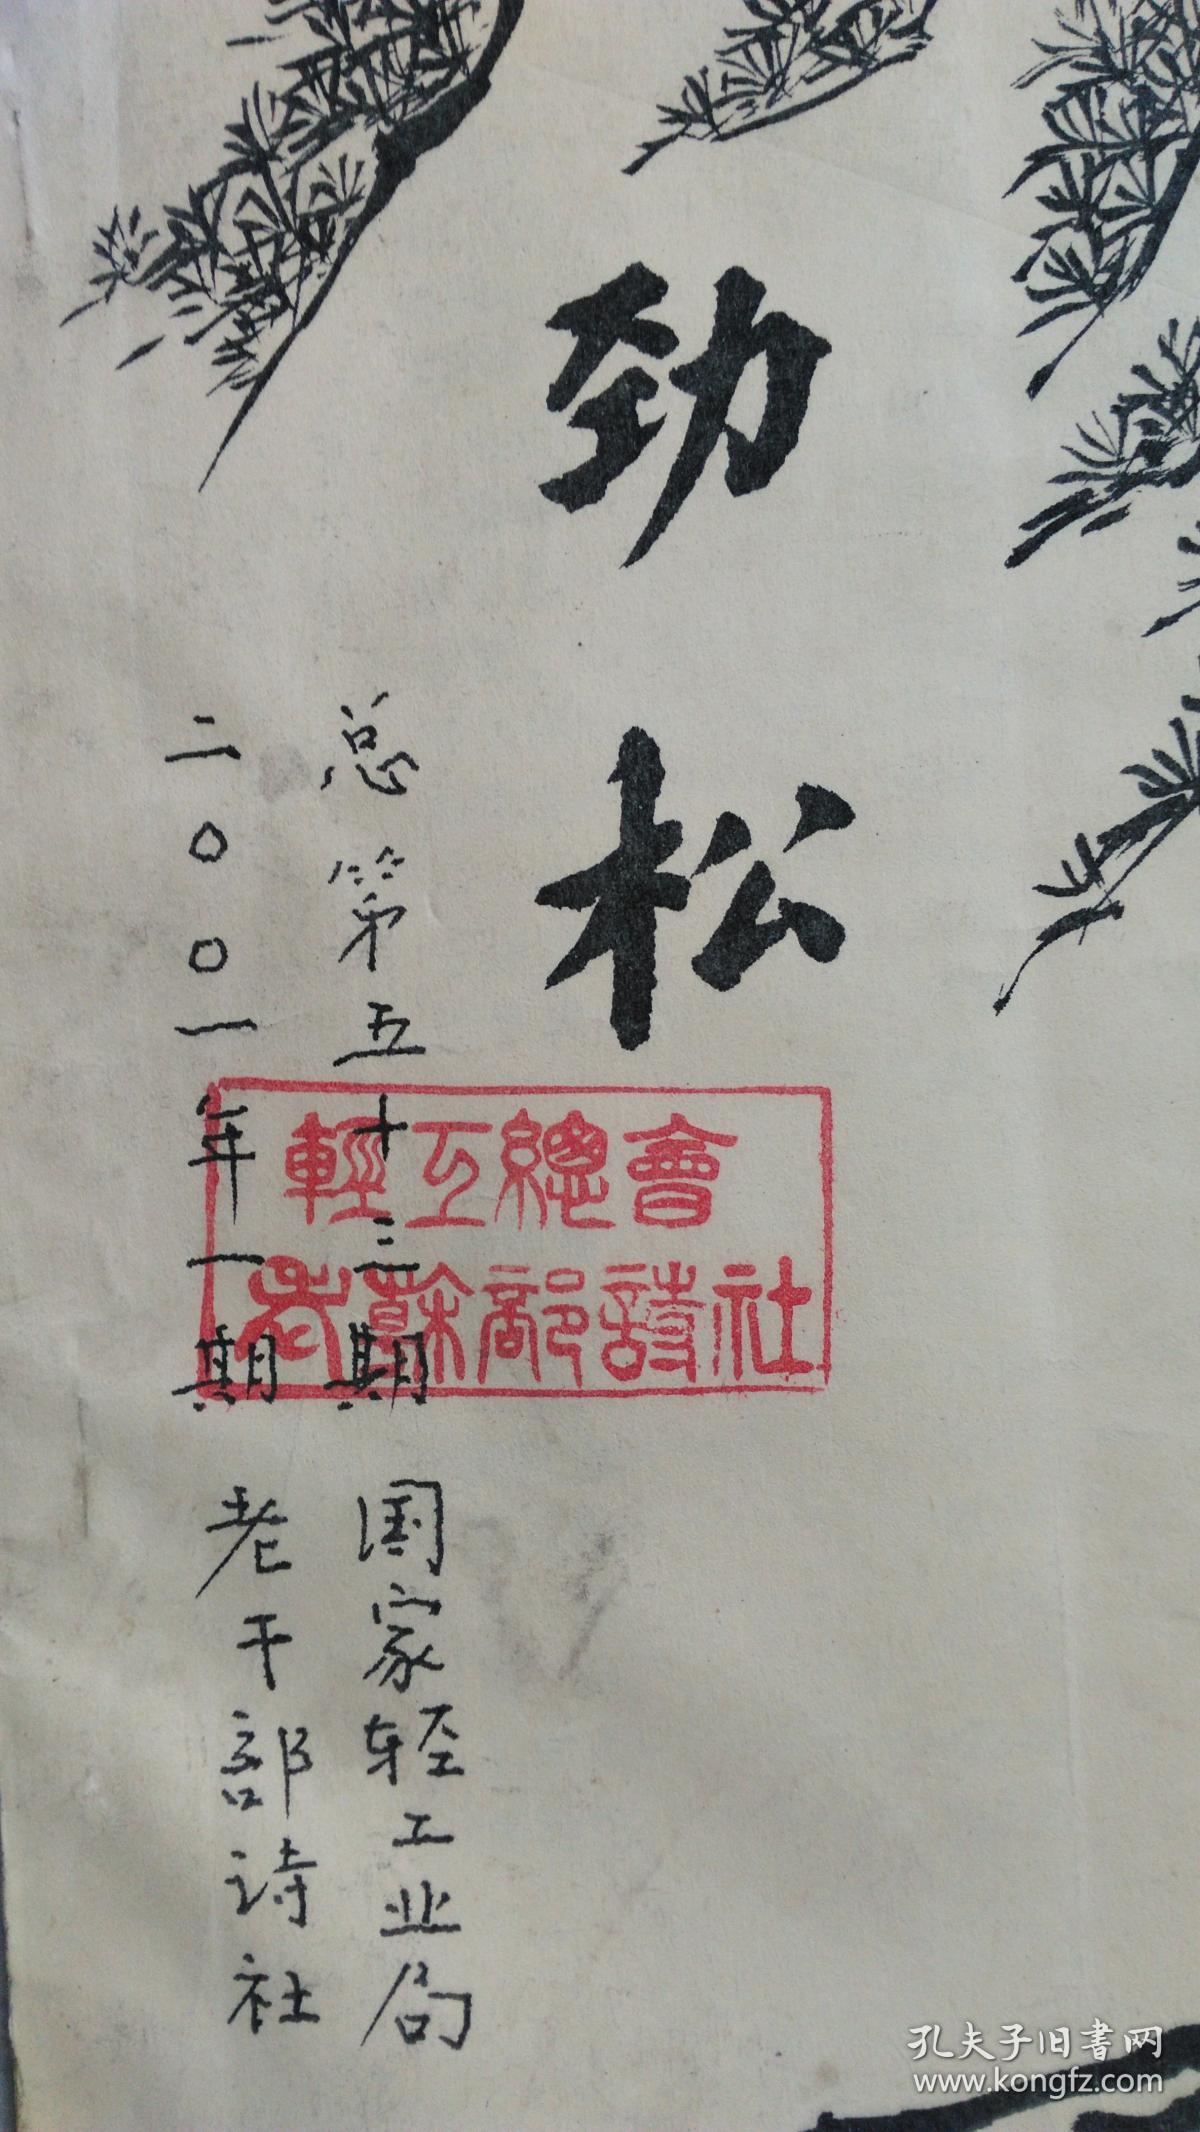 劲松
总第五十三期 国家轻工业局
二〇〇一年一期 老干部诗社
輕工總會
老幹部詩社
孔夫子旧书网
www.kongfz.com